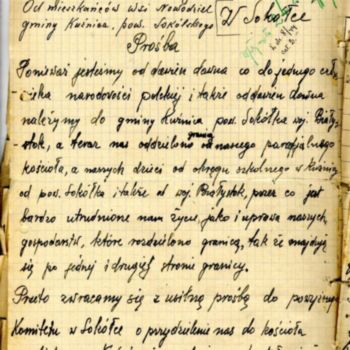 Od mieszkańców wsi Nowodziel
gminy Kuźnica, pow. Sokólskiego
W Sokółce
Prośba
Ponieważ jesteśmy od dawien dawna co do jednego czł-
wieka narodowości polskiej i także od dawien dawna
należymy do gminy Kuźnica pow. Sokółka woj. Biały-
stok, a teraz nas oddzielono granicą od naszego parafjalnego
kościoła, a naszych dzieci od okręgu szkolnego w Kuźnicy
od pow. Sokółka i także od woj. Białystok, przez co jest
bardzo utrudnione nam życie, jako i uprawa naszych
gospodarstw, które rozdzielono granicą, tak że znajdują
się po jednej i drugiej stronie granicy.
Przeto zwracamy się z usilną prośbą do
Komitetu w Sokółce o przydzielenie nas do kościoła